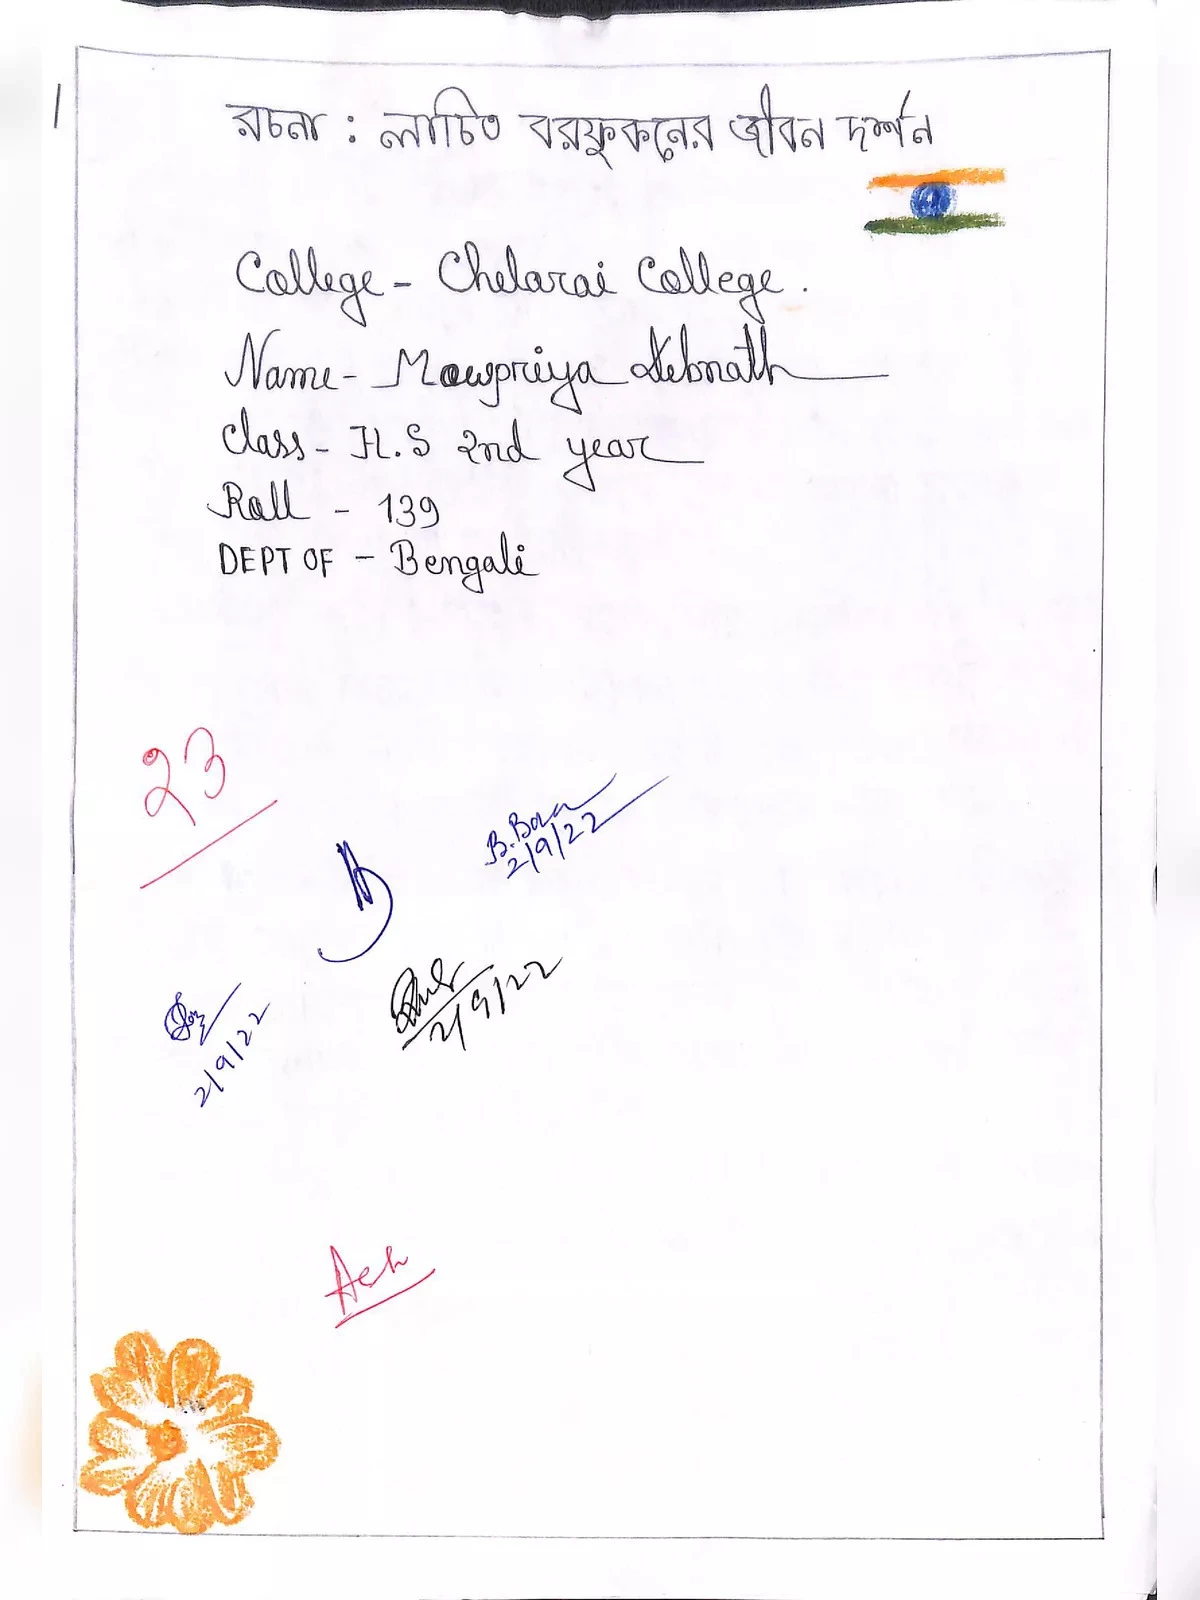 1
রচনা : লাচিত বরফুকনের জীবন দর্শন
College - Chelarai College.
Name - Mowpriya Debnath
Class - H.S 2nd year
Roll - 139
DEPT OF - Bengali
23
B. Bora
2/9/22
2/9/22
2/9/22